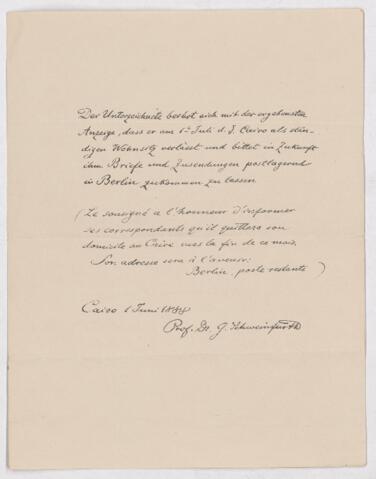 Der Unterzeichnete beehrt sich mit der ergebensten
Anzeige, dass er am 1ten Juli d. J. Cairo als stän-
digen Wohnsitz verlässt und bittet in Zukunft
ihm Briefe und Zusendungen postlagernd
in Berlin zukommen zu lassen
(Le sousigné a l'honneur d'informer
ses correspondants qu'il quittera son
domicile au Caire vers la fin de ce mois.
Son adresse sera à l'avenir:
Berlin, poste restante)
Cairo 1 Juni 1888
Prof. Dr. G. Schweinfurth